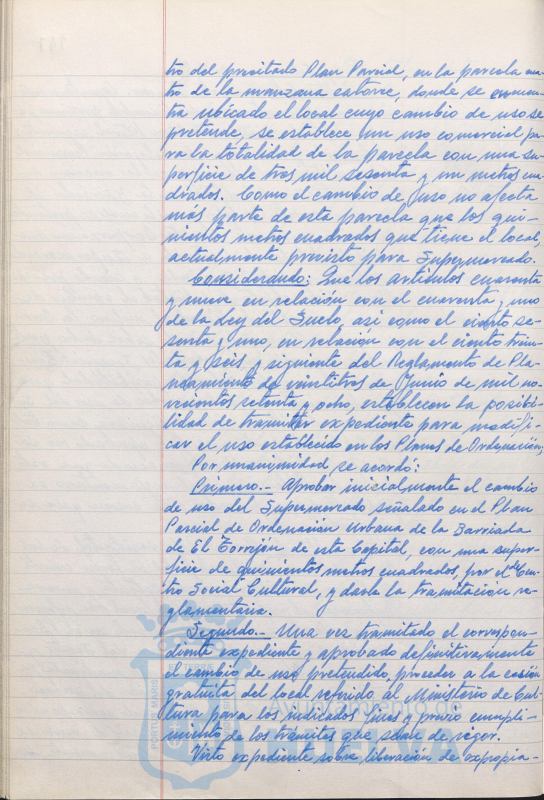 tro del precitado Plan Parcial, en la parcela cua-
tro de la manzana catorce, donde se encuen-
tra ubicado el local cuyo cambio de uso se
pretende, se establece un uso comercial pa-
ra la totalidad de la parcela con una su-
perficie de tres mil sesenta y un metros cua-
drados. Como el cambio de uso no afecta
más parte de esta parcela que los qui-
nientos metros cuadrados que tiene el local,
actualmente previsto para Supermercado.
Considerdndo: Que los artículos cuarenta
y nueve en relación con el cuarenta y uno
de la Ley del Suelo, así como el ciento se-
senta y uno, en relación con el ciento trein-
ta y seis y siguiente del Reglamento de Pla-
neamiento de veintitres de Junio de mil no-
vecientos setenta y ocho, establecen la posibi-
lidad de tramitar expediente para modifi-
car el uso establecido en los Planos de Ordenación,
Por unanimidad se acordó:
Primero.- Aprobar inicialmente el cambio
de uso del Supermercado señalado en el Plan
Parcial de Ordenación Urbana de la Barriada
de El Torrejón de esta Capital, con una super-
ficie de quinientos metros cuadrados, por el de Cen-
tro Social Cultural, y darle la tramitación re-
glamentaria.
Segundo.- Una vez tramitado el correspon-
diente expediente y aprobado definitivamente
el cambio de uso pretendido, proceder a la cesión
gratuita del local referido al Ministerio de Cul-
tura para los indicados fines y previo cumpli-
miento de los trámites que sean de rigor.
Visto expediente sobre liberación de expropia-
Ayuntamiento de
HUELVA